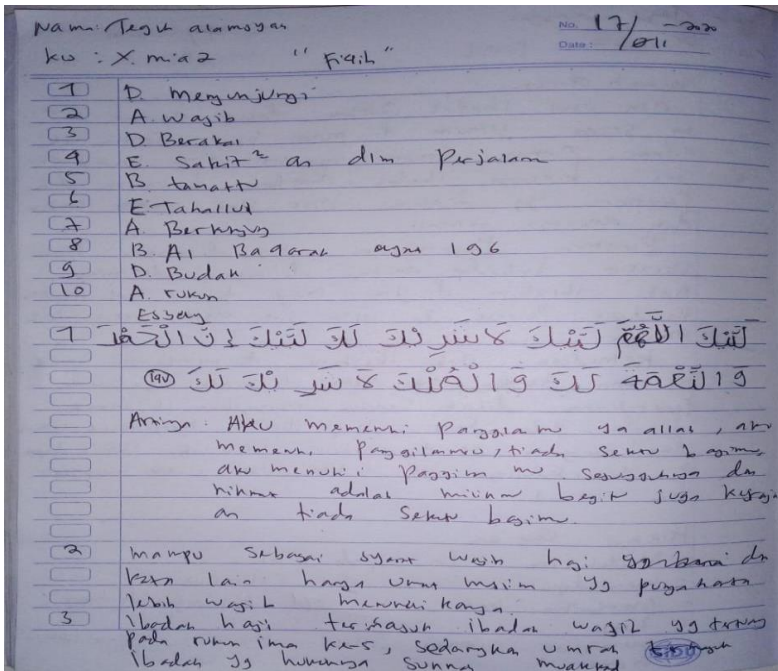 Nama: Teguh alamsyah
No. 17/ - 2020
Date: /011
kls : X. mia 2 " Fiqih "
1 D. Mengunjungi
2 A. wajib
3 D. Berakal
4 E. Sakit² an dlm Perjalanan
5 B. tamattu
6 E. Tahallul
7 A. Berkunjung
8 B. Al Baqarah ayat 196
9 D. Budak
10 A. rukun
Essay
1 لَبَّيْكَ اللَّهُمَّ لَبَّيْكَ لَا شَرِيْكَ لَكَ لَبَّيْكَ إِنَّ الْحَمْدَ
وَالنِّعْمَةَ لَكَ وَالْمُلْكَ لَا شَرِيْكَ لَكَ ١٩٧
Artinya: Aku memenuhi Panggilan mu ya allah, aku
memenuhi Panggilanmu, tiada sekutu bagimu
aku menuhi Panggilan mu. Sesungguhnya dan
nikmat adalah milikmu begitu juga kerajaan
an tiada sekutu bagimu.
2 mampu sebagai syarat wajib haji dn
kata lain hanya umat muslim yg
lebih wajib
3 Ibadah haji termasuk ibadah wajib yg
Pada rukun , sedangkan umrah
ibadah yg hukumnya sunnah muakkad